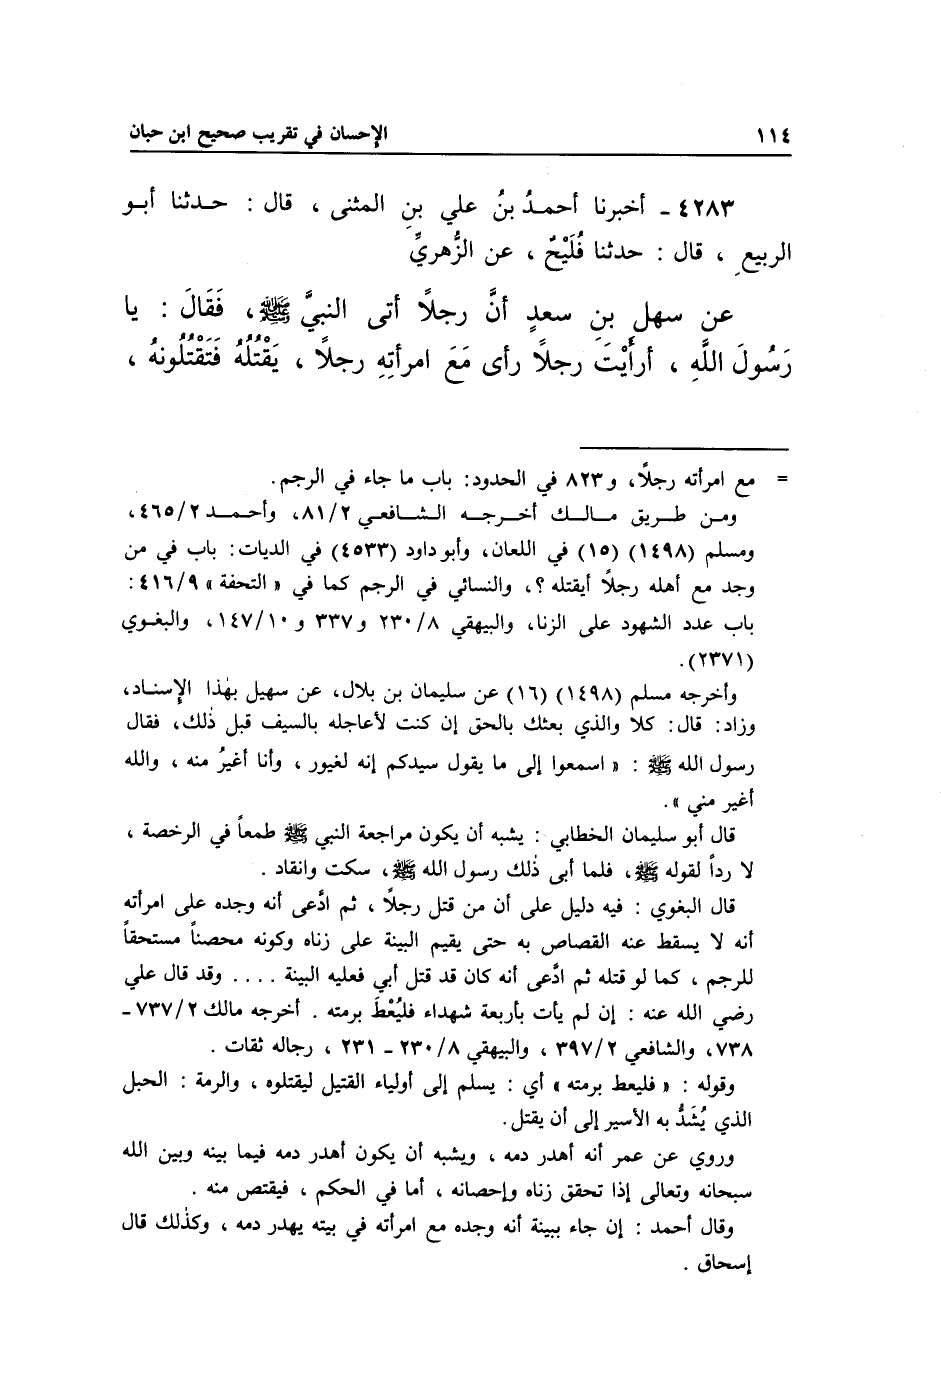 ١١٤ الإحسان في تقريب صحيح ابن حبان
٤٢٨٣ ـ أخبرنا أحمدُ بنُ علي بنِ المثنى ، قال : حدثنا أبو
الربيعِ ، قال : حدثنا فُلَيْحٌ ، عن الزُّهريِّ
عن سهل بنِ سعدٍ أنَّ رجلاً أتى النبيَّ ﷺ، فَقَالَ : يا
رَسُولَ اللَّهِ ، أرأَيْتَ رجلاً رأى مَعَ امرأتِهِ رجلاً ، يَقْتُلُهُ فَتَقْتُلُونهُ ،
= مع امرأته رجلاً، و٨٢٣ في الحدود: باب ما جاء في الرجم.
ومن طريق مالك أخرجه الشافعي ٨١/٢، وأحمد ٤٦٥/٢،
ومسلم (١٤٩٨) (١٥) في اللعان، وأبو داود (٤٥٣٣) في الديات: باب في من
وجد مع أهله رجلاً أيقتله ؟، والنسائي في الرجم كما في «التحفة» ٤١٦/٩:
باب عدد الشهود على الزنا، والبيهقي ٢٣٠/٨ و٣٣٧ و١٤٧/١٠، والبغوي
(٢٣٧١).
وأخرجه مسلم (١٤٩٨) (١٦) عن سليمان بن بلال، عن سهيل بهٰذا الإسناد،
وزاد: قال: كلا والذي بعثك بالحق إن كنت لأعاجله بالسيف قبل ذٰلك، فقال
رسول الله ﷺ : « اسمعوا إلى ما يقول سيدكم إنه لغيور ، وأنا أغيرُ منه ، والله
أغير مني ».
قال أبو سليمان الخطابي : يشبه أن يكون مراجعة النبي ﷺ طمعاً في الرخصة ،
لا رداً لقوله ﷺ، فلما أبى ذٰلك رسول الله ﷺ، سكت وانقاد .
قال البغوي : فيه دليل على أن من قتل رجلاً ، ثم ادَّعى أنه وجده على امرأته
أنه لا يسقط عنه القصاص به حتى يقيم البينة على زناه وكونه محصناً مستحقاً
للرجم ، كما لو قتله ثم ادَّعى أنه كان قد قتل أبي فعليه البينة .... وقد قال علي
رضي الله عنه : إن لم يأت بأربعة شهداء فليُعْطَ برمته . أخرجه مالك ٧٣٧/٢ ـ
٧٣٨، والشافعي ٣٩٧/٢ ، والبيهقي ٢٣٠/٨ ـ ٢٣١ ، رجاله ثقات .
وقوله : « فليعط برمته » أي : يسلم إلى أولياء القتيل ليقتلوه ، والرمة : الحبل
الذي يُشَدُّ به الأسير إلى أن يقتل.
وروي عن عمر أنه أهدر دمه ، ويشبه أن يكون أهدر دمه فيما بينه وبين الله
سبحانه وتعالى إذا تحقق زناه وإحصانه ، أما في الحكم ، فيقتص منه .
وقال أحمد : إن جاء ببينة أنه وجده مع امرأته في بيته يهدر دمه ، وكذٰلك قال
إسحاق .